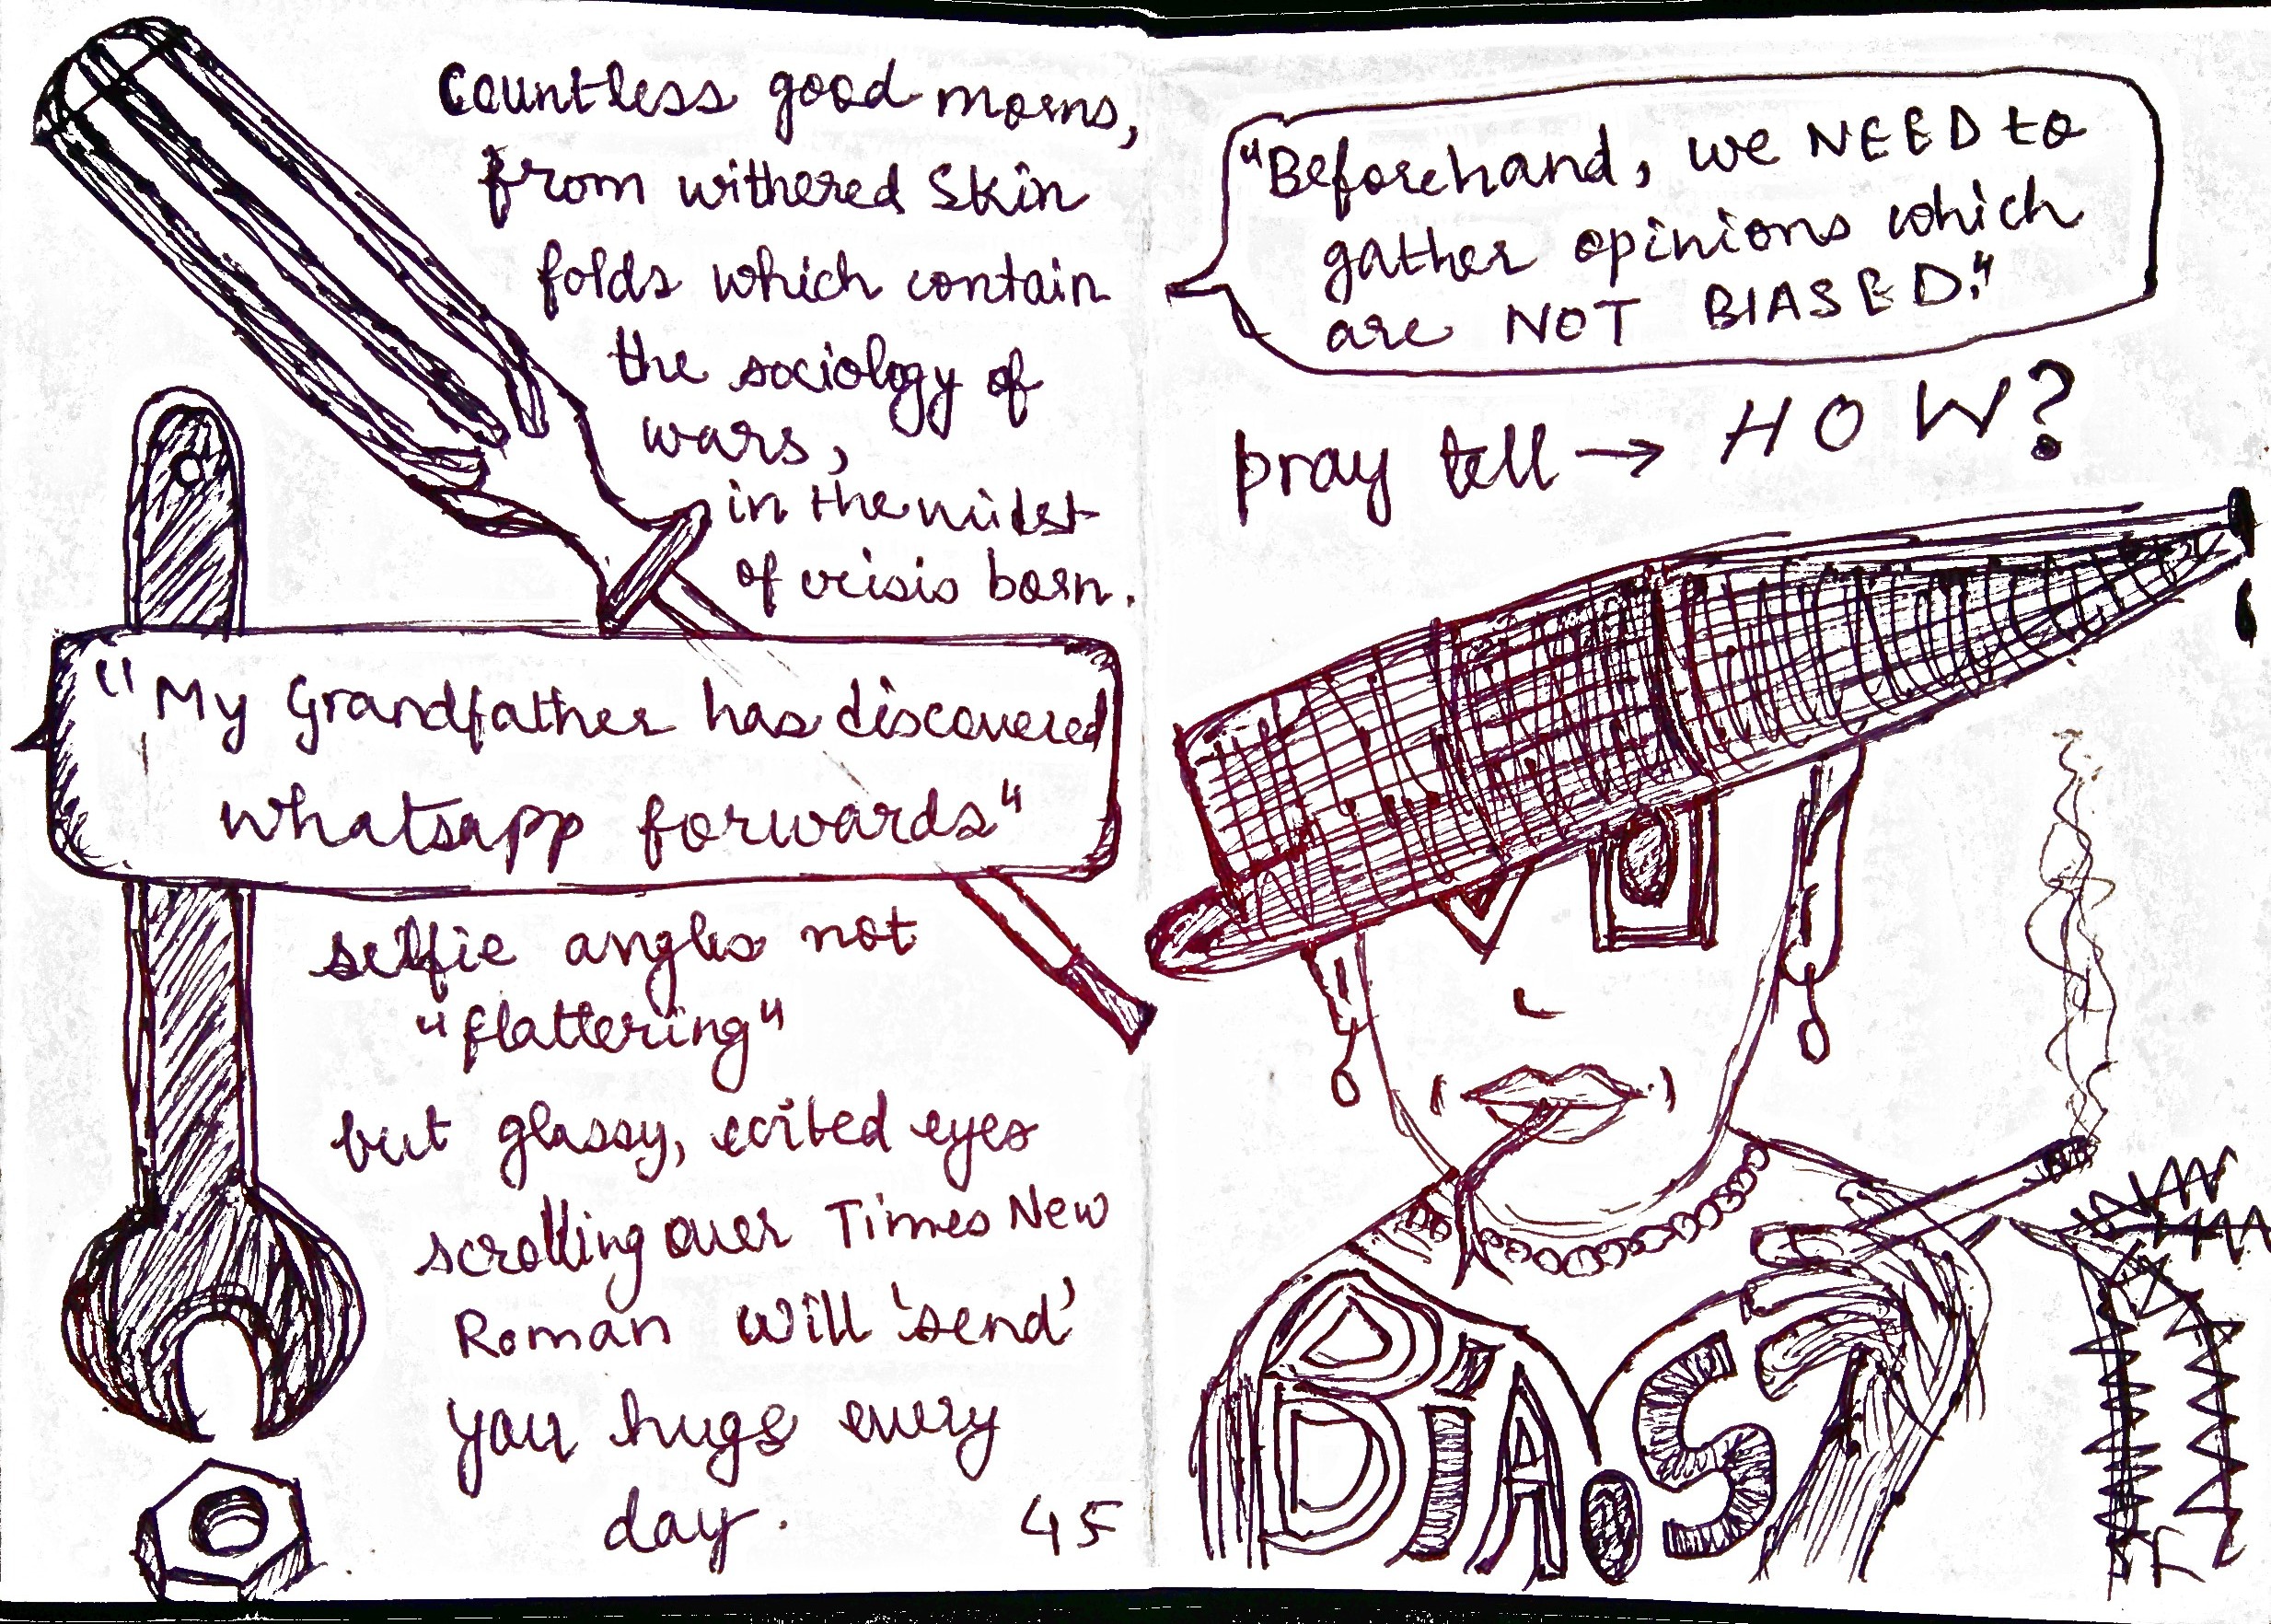 Countless good morns,
from withered skin
folds which contain
the sociology of
wars,
in the midst
of crisis born.
"My Grandfather has discovered
whatsapp forwards"
selfie angles not
"flattering"
but glassy, excited eyes
scrolling over Times New
Roman will 'send'
you hugs every
day.
45
"Beforehand, we NEED to
gather opinions which
are NOT BIASED."
pray tell → HOW?
BiA.S